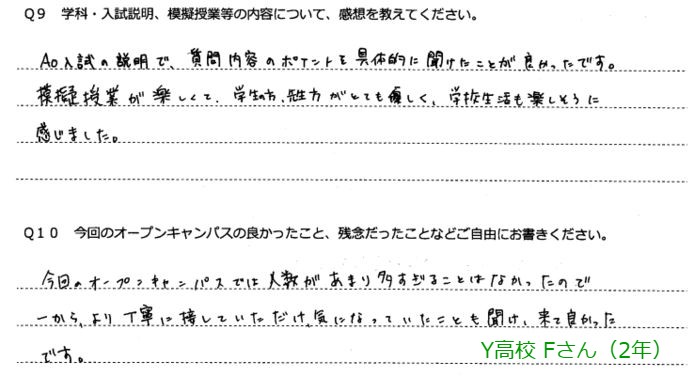 Q9 学科・入試説明、模擬授業等の内容について、感想を教えてください。
AO入試の説明で、質問内容のポイントを具体的に聞けたことが良かったです。
模擬授業が楽しくて、学生の方、先生方がとても優しく、学校生活も楽しそうに
感じました。
Q10 今回のオープンキャンパスの良かったこと、残念だったことなどご自由にお書きください。
今回のオープンキャンパスでは人数があまり多すぎることはなかったので
一から、より丁寧に接していただけ、気になっていたことも聞け、来て良かった
です。
Y高校 Fさん（2年）